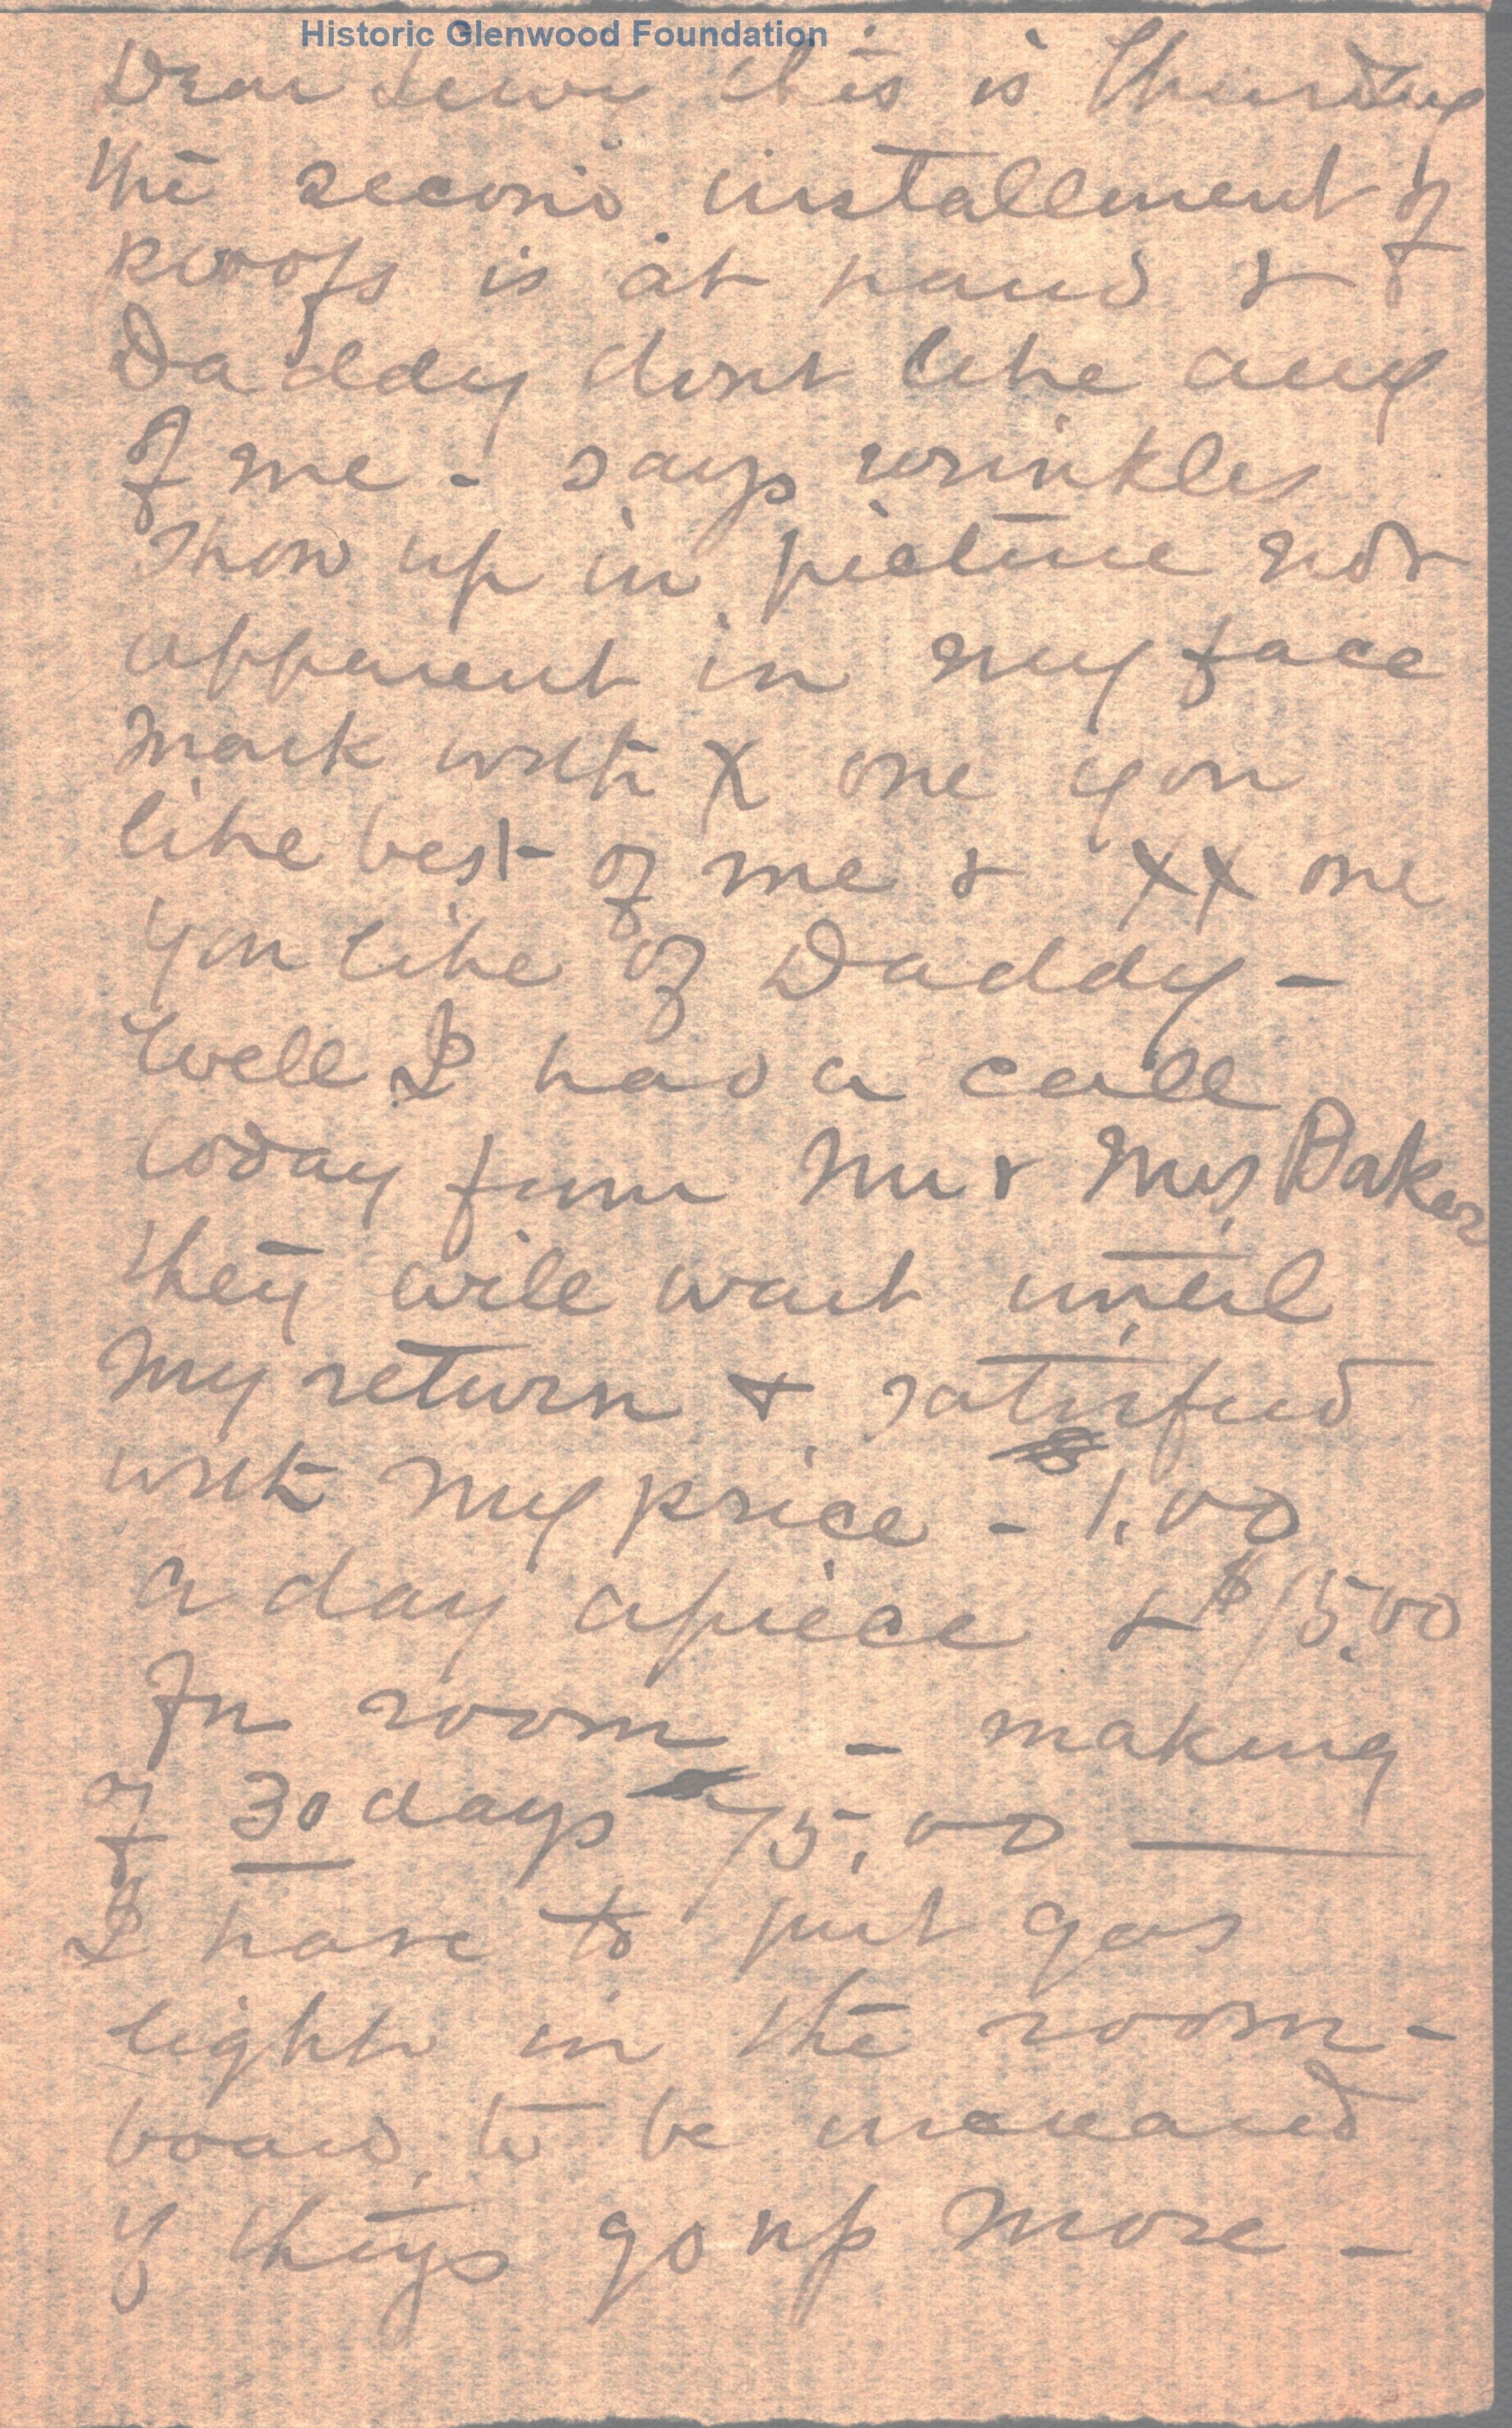 Historic Glenwood Foundation
Dear this is Thursday
the second installment of
proofs is at hand &
Daddy dont like any
of me - says wrinkles
show up in picture not
apparent in my face
Mark with X one you
like best of me & XX one
you like of Daddy -
Well I had a call
today from Mr & Mrs Baker
they will wait until
my return & satisfied
with my price - 1.00
a day apiece & $15.00
For room - making
of 30 days 75.00
I have to put gas
light in the room -
board to be increased
if things go up more -